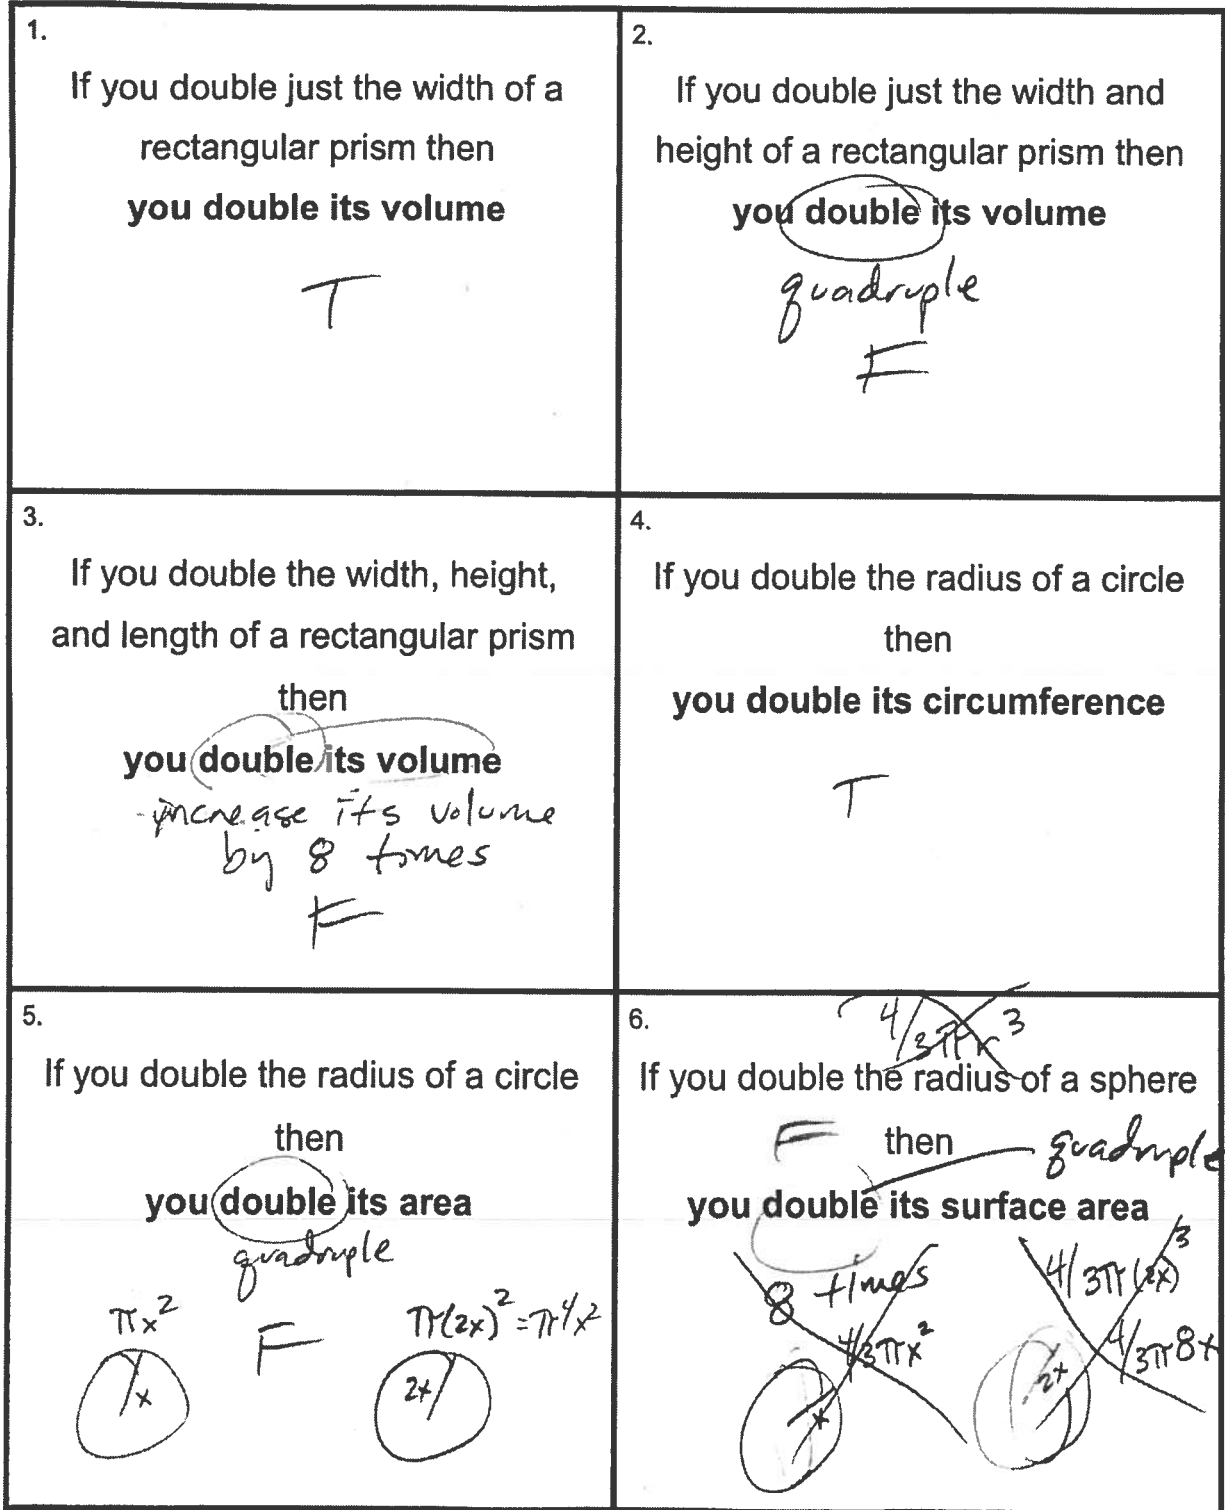 1.
If you double just the width of a
rectangular prism then
you double its volume
T
2.
If you double just the width and
height of a rectangular prism then
you double its volume
quadruple
F
3.
If you double the width, height,
and length of a rectangular prism
then
you double its volume
increase its volume
by 8 times
F
4.
If you double the radius of a circle
then
you double its circumference
T
5.
If you double the radius of a circle
then
you double its area
quadruple
πx² F π(2x)² = π4x²
x 2x
6.
4/3πr³
If you double the radius of a sphere
F then quadruple
you double its surface area
8 times 4/3π(2x)³
4/3πx² 4/3π8x
x 2x